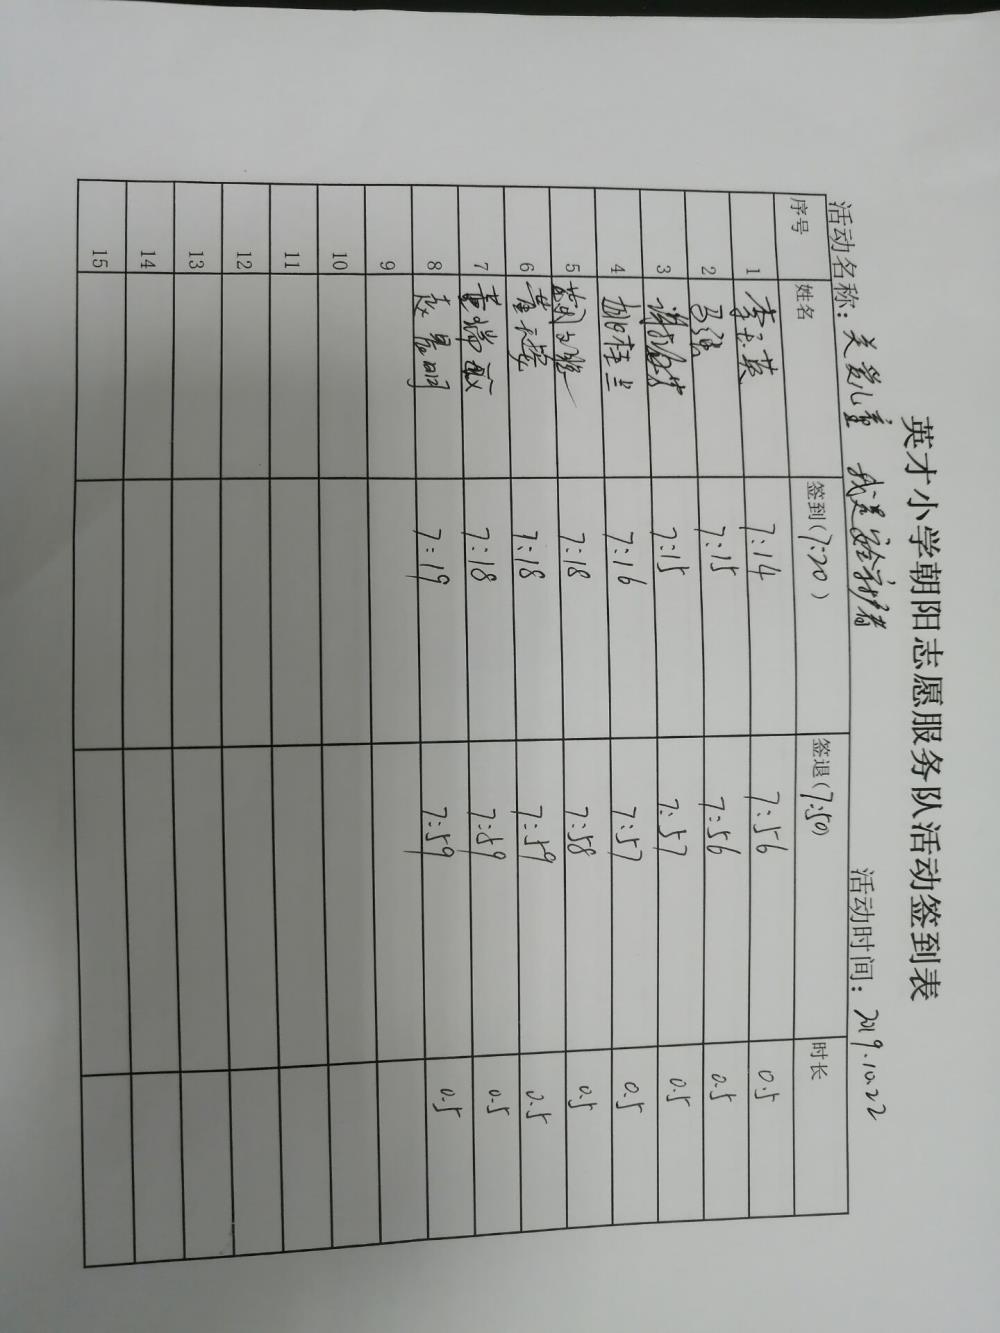 英才小学朝阳志愿服务队活动签到表
活动名称：关爱儿童 我是安全守护者 活动时间：2019.10.22
序号 姓名 签到（7:20） 签退（7:50） 时长
1 李玉英 7:14 7:56 0.5
2 马强 7:15 7:56 0.5
3 7:15 7:57 0.5
4 桂兰 7:16 7:57 0.5
5 7:18 7:58 0.5
6 7:18 7:59 0.5
7 黄瑞敏 7:18 7:59 0.5
8 赵景明 7:19 7:59 0.5
9
10
11
12
13
14
15